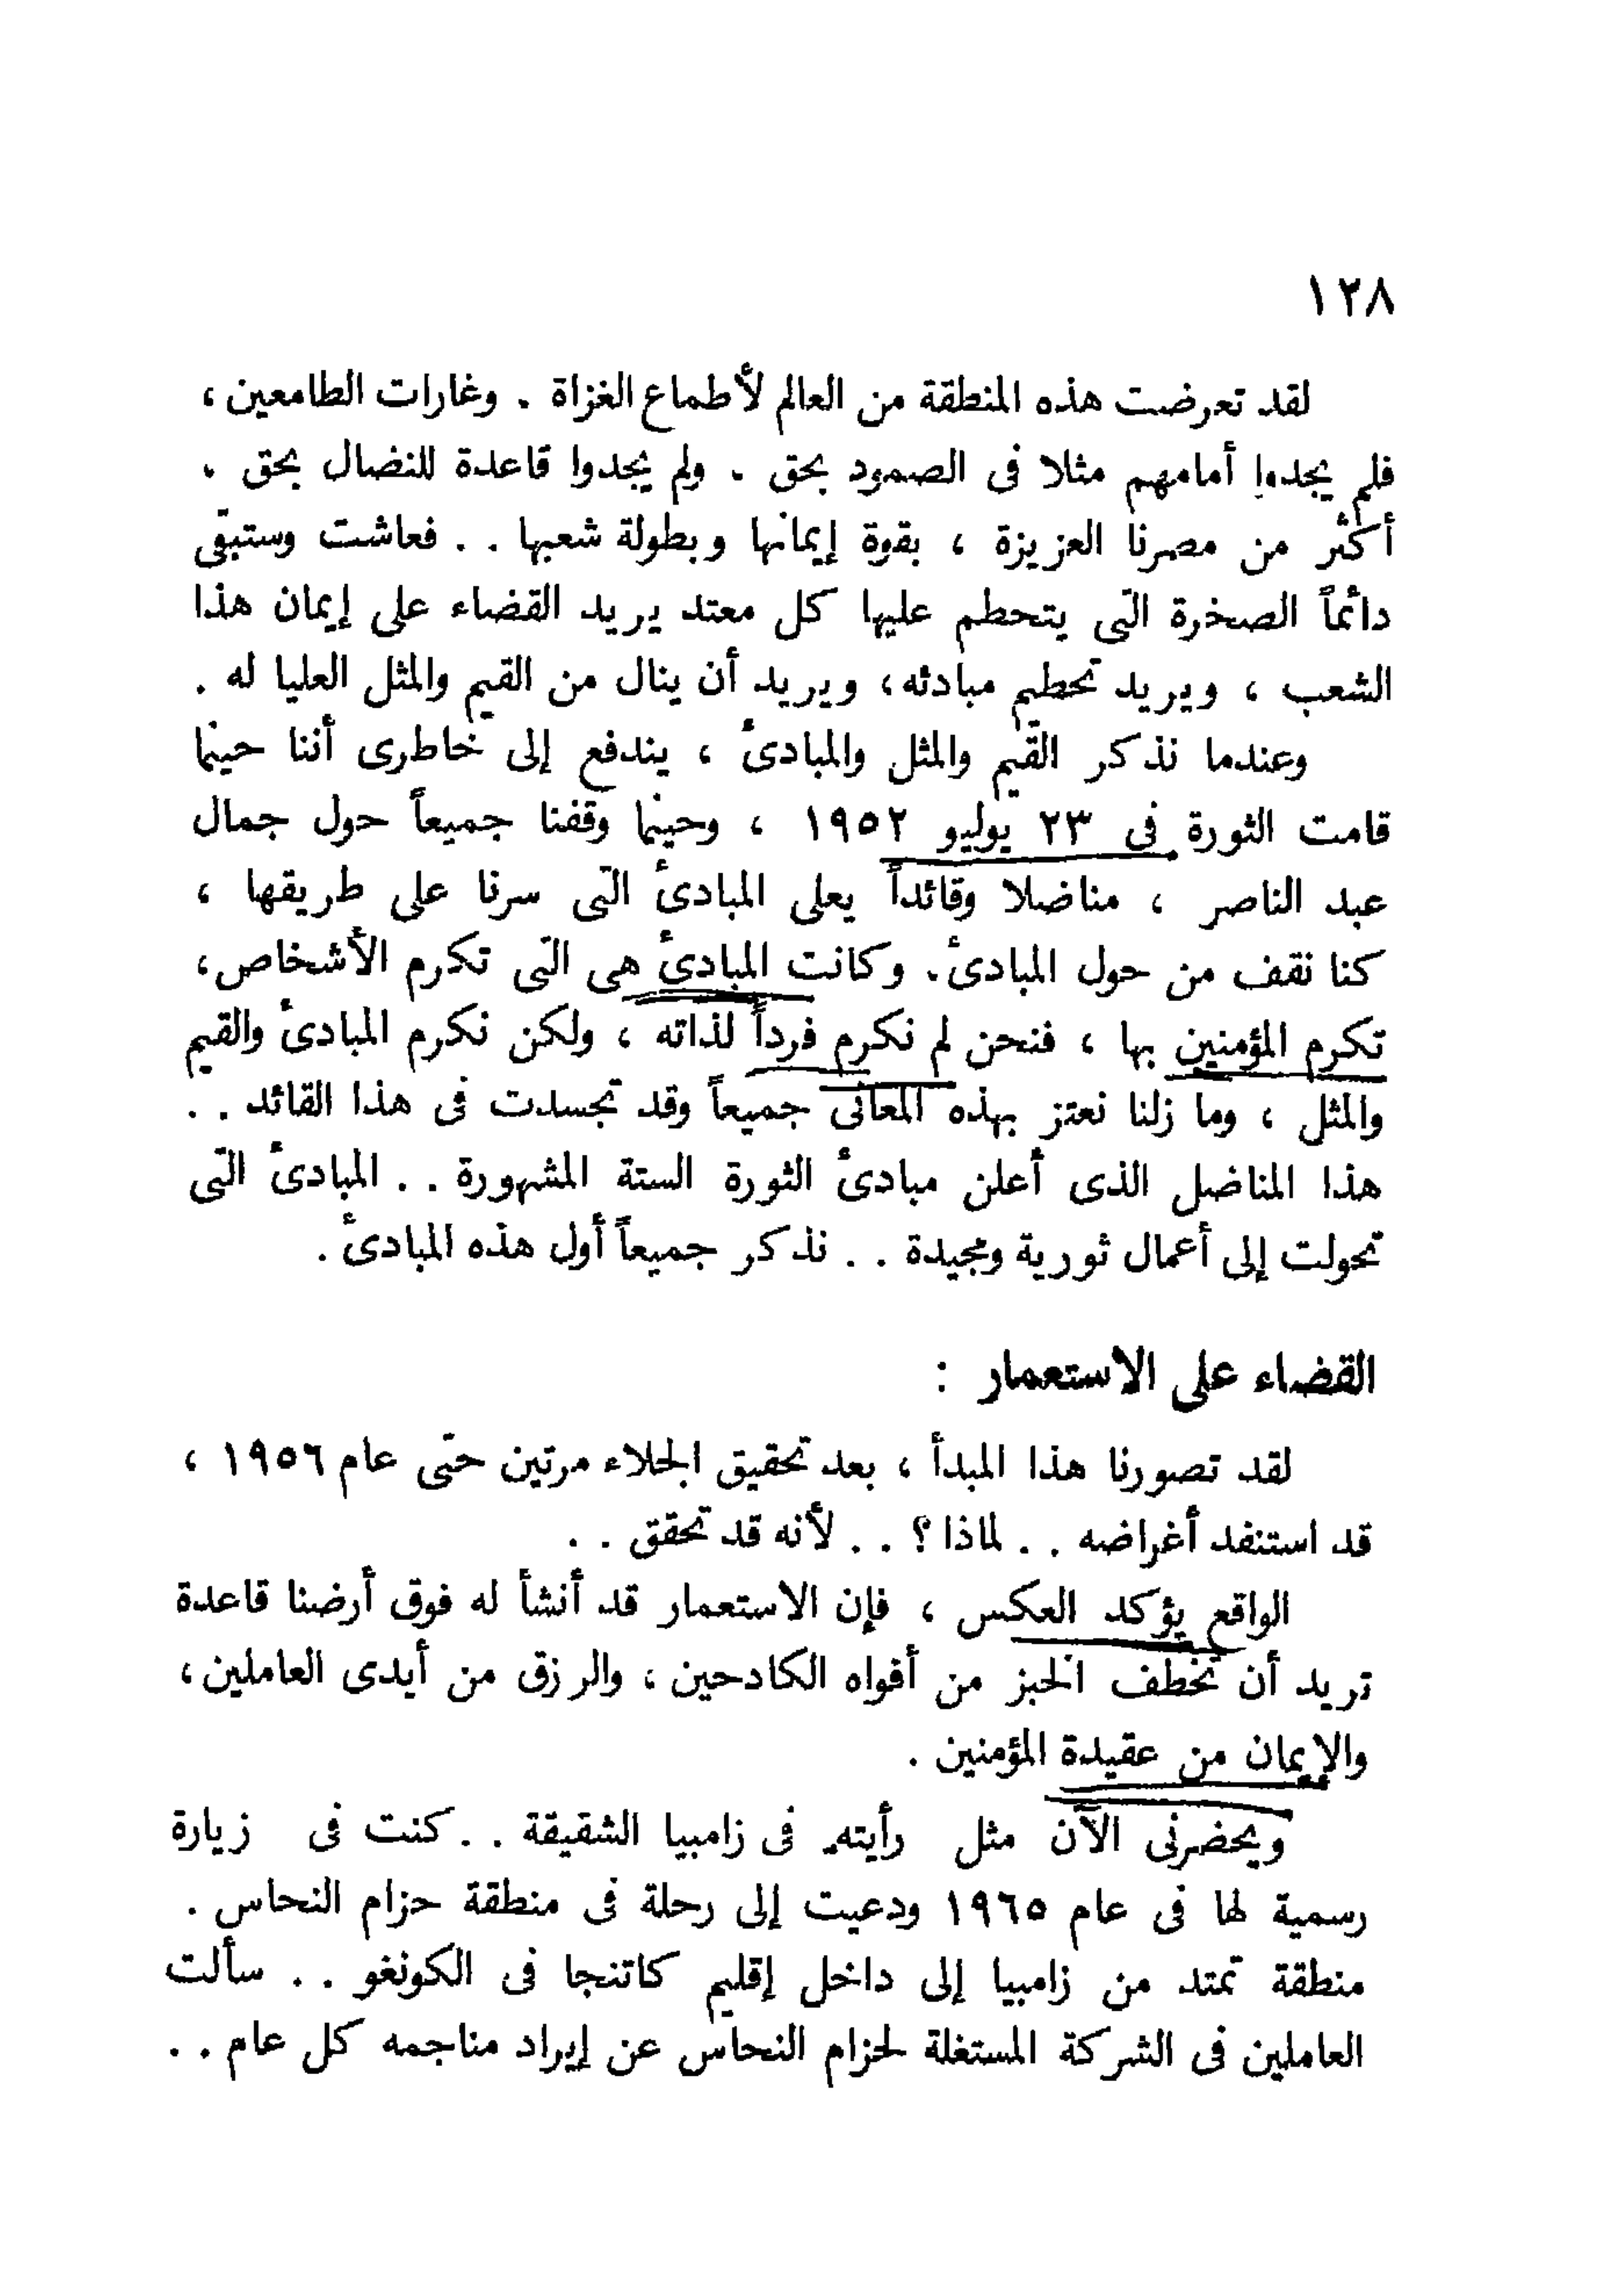 ١٢٨
لقد تعرضت هذه المنطقة من العالم لأطماع الغزاة . وغارات الطامعين ،
فلم يجدوا أمامهم مثلا فى الصمود بحق . ولم يجدوا قاعدة للنضال بحق .
أكثر من مصرنا العزيزة ، بقوة إيمانها وبطولة شعبها . . فعاشت وستبقى
دائماً الصخرة التى يتحطم عليها كل معتد يريد القضاء على إيمان هذا
الشعب ، ويريد تحطيم مبادئه ، ويريد أن ينال من القيم والمثل العليا له .
وعندما نذكر القيم والمثل والمبادئ ، يندفع إلى خاطرى أننا حينما
قامت الثورة فى ٢٣ يوليو ١٩٥٢ ، وحينما وقفنا جميعاً حول جمال
عبد الناصر ، مناضلا وقائداً يعلى المبادئ التى سرنا على طريقها ،
كنا نقف من حول المبادئ . وكانت المبادئ هى التى تكرم الأشخاص ،
تكرم المؤمنين بها ، فنحن لم نكرم فرداً لذاته ، ولكن نكرم المبادئ والقيم
والمثل ، وما زلنا نعتز بهذه المعانى جميعاً وقد تجسدت فى هذا القائد . .
هذا المناضل الذى أعلن مبادئ الثورة الستة المشهورة . . المبادئ التى
تحولت إلى أعمال ثورية ومجيدة . . نذكر جميعاً أول هذه المبادئ .
القضاء على الاستعمار :
لقد تصورنا هذا المبدأ ، بعد تحقيق الجلاء مرتين حتى عام ١٩٥٦ ،
قد استنفد أغراضه . . لماذا ؟ . . لأنه قد تحقق . .
الواقع يؤكد العكس ، فإن الاستعمار قد أنشأ له فوق أرضنا قاعدة
تريد أن تخطف الخبز من أفواه الكادحين ، والرزق من أيدى العاملين ،
والإيمان من عقيدة المؤمنين .
ويحضرنى الآن مثل رأيته فى زامبيا الشقيقة . . كنت فى زيارة
رسمية لها فى عام ١٩٦٥ ودعيت إلى رحلة فى منطقة حزام النحاس .
منطقة تمتد من زامبيا إلى داخل إقليم كاتنجا فى الكونغو . . سألت
العاملين فى الشركة المستغلة لحزام النحاس عن إيراد مناجمه كل عام . .